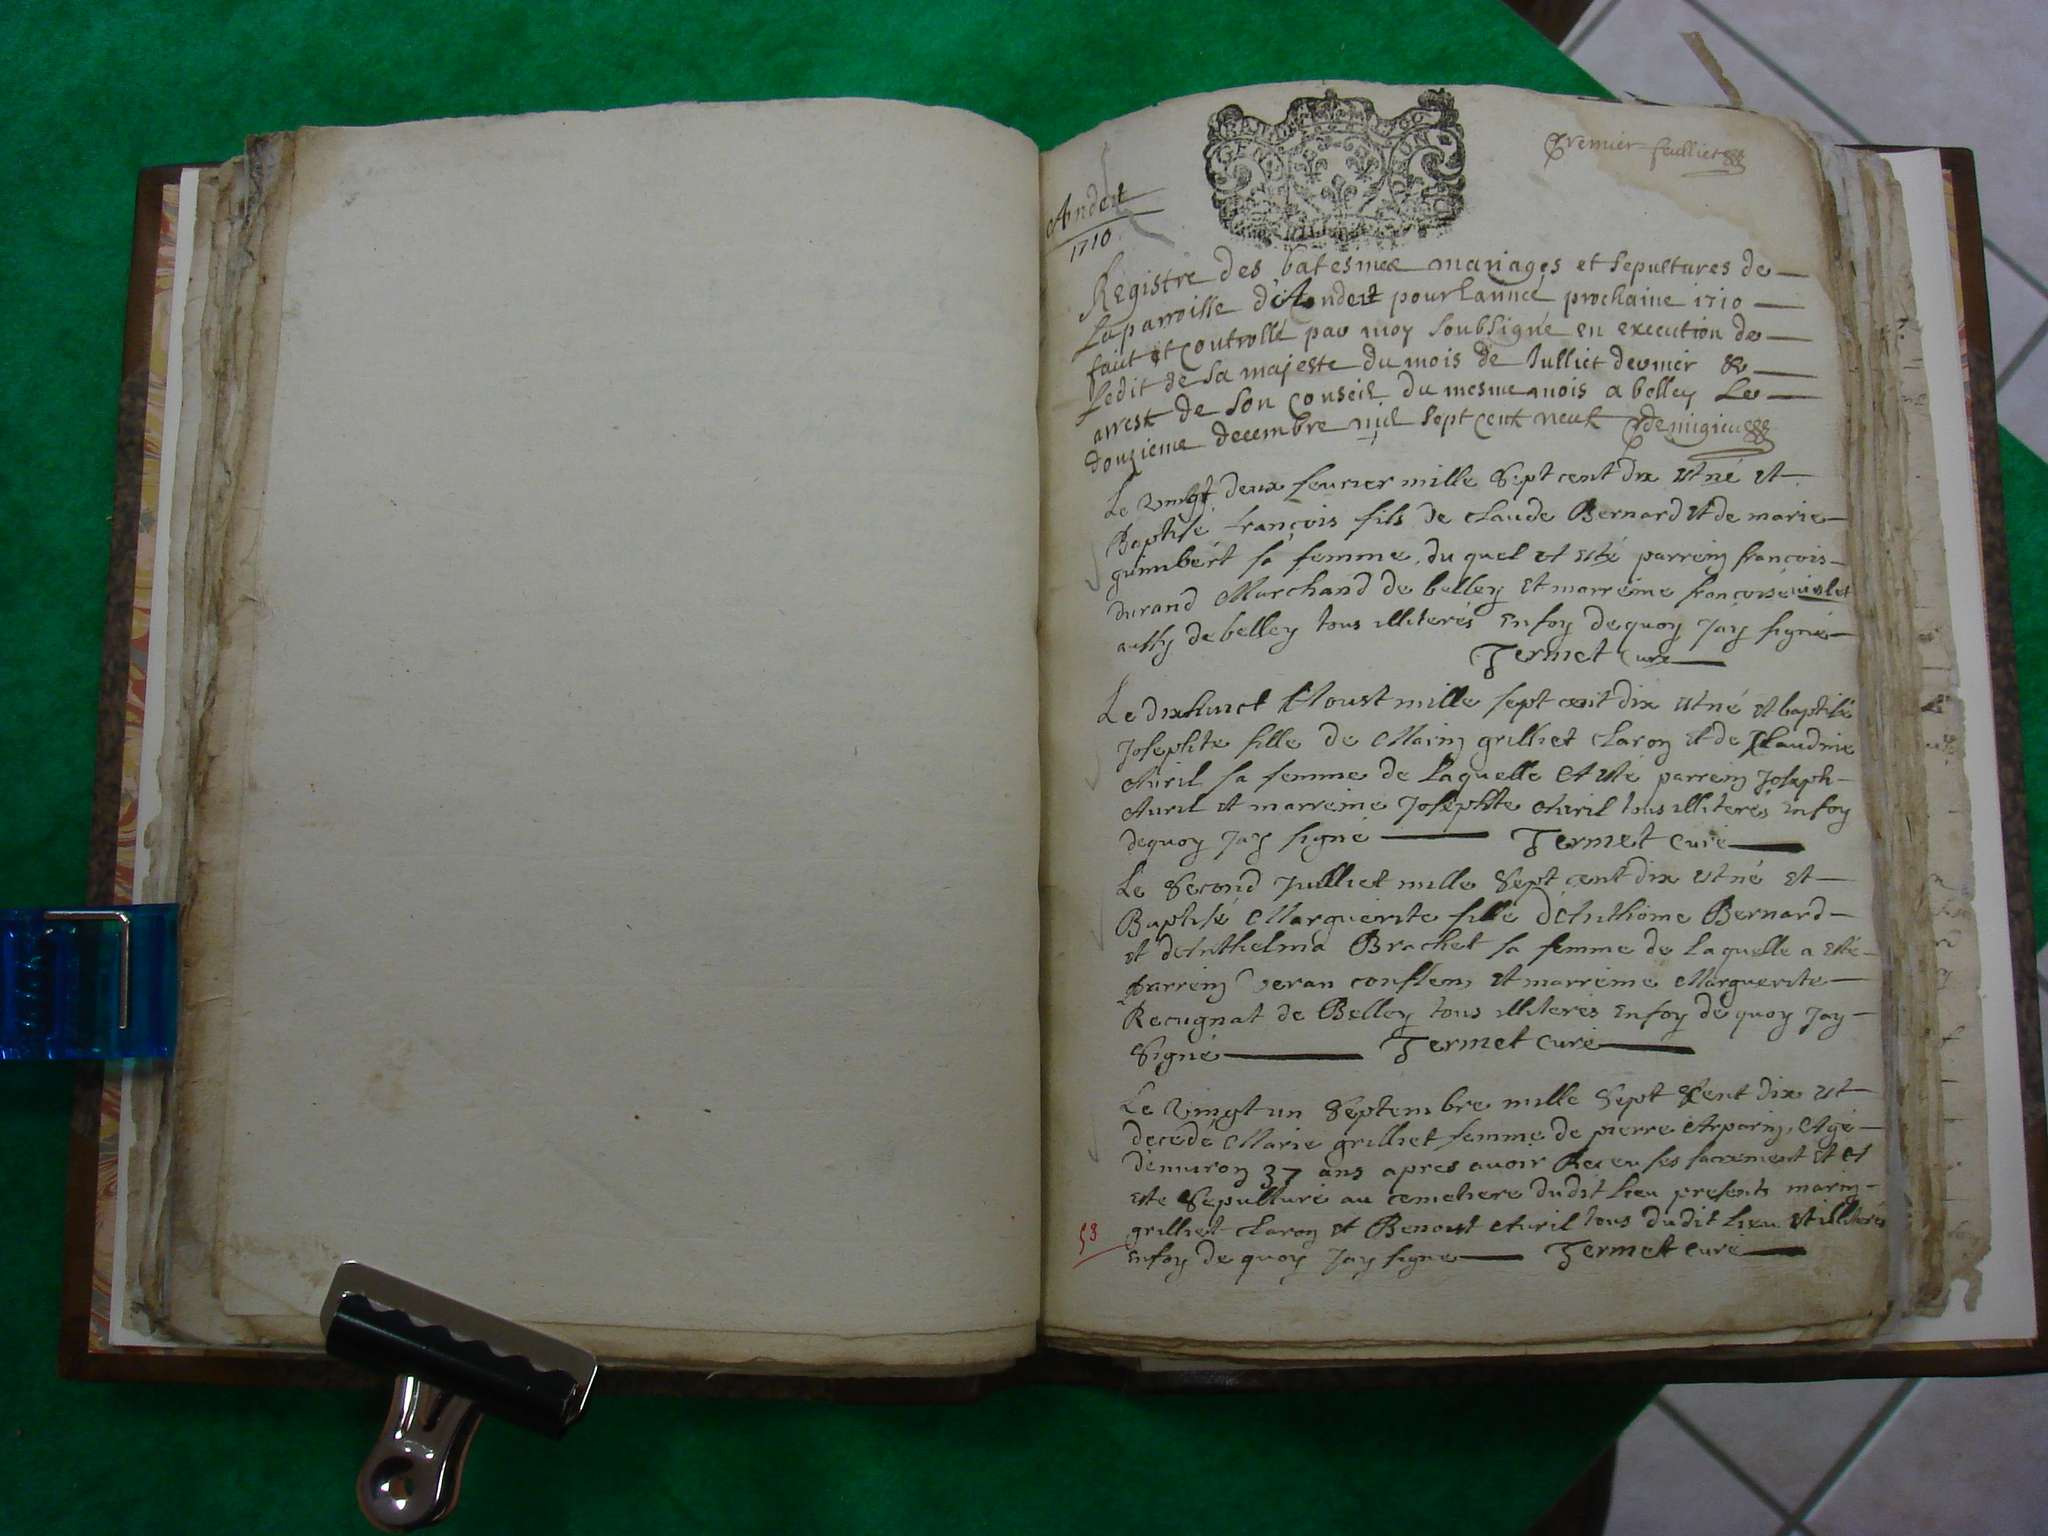 Premier feulliet
Andert
1710
Registre des batesmes mariages et sepultures de
La parroisse d'Andert pour lannee prochaine 1710
fait et controllé par moy soubsigné en execution de
Ledit de sa majeste du mois de Julliet dernier &
arrest de son conseil du mesme mois a belley Le
douzieme decembre mil sept cent neuf
Le vingt deux feurier mille sept cent dix est né et
Baptisé françois fils de claude Bernard et de marie
guinbert sa femme, du quel at esté parrein françois
durand Marchand de belley et marreine françoise violet
aussy de belley tous illiterés En foy de quoy Jay signé
Termet Curé
Le dixhuict Aoust mille sept cent dix est né et baptisé
Josephte fille de Marin grilliet claron et de Claudine
Auril sa femme de laquelle at esté parrein Joseph
Auril et marreine Josephte Auril tous illiterés enfoy
dequoy Jay signé Termet Curé
Le Second Julliet mille Sept cent dix est né et
Baptisé Marguerite fille d'Anthoine Bernard
et d'Anthelma Brachet sa femme de laquelle a esté
parrein veran conflens et marreine Marguerite
Recugnat de Belley tous illiterés enfoy de quoy Jay
Signé Termet Curé
Le vingt un Septembre mille Sept Cent dix est
decédé Marie grilliet femme de pierre Arparin, Agé
d'enuiron 37 ans apres auoir Receu ses sacrement et at
esté Sepulturé au cemetiere dudit lieu presents marin
grilliet claron et Benoist Auril tous dudit lieu et illiterés
53
enfoy de quoy Jay signe Termet Curé